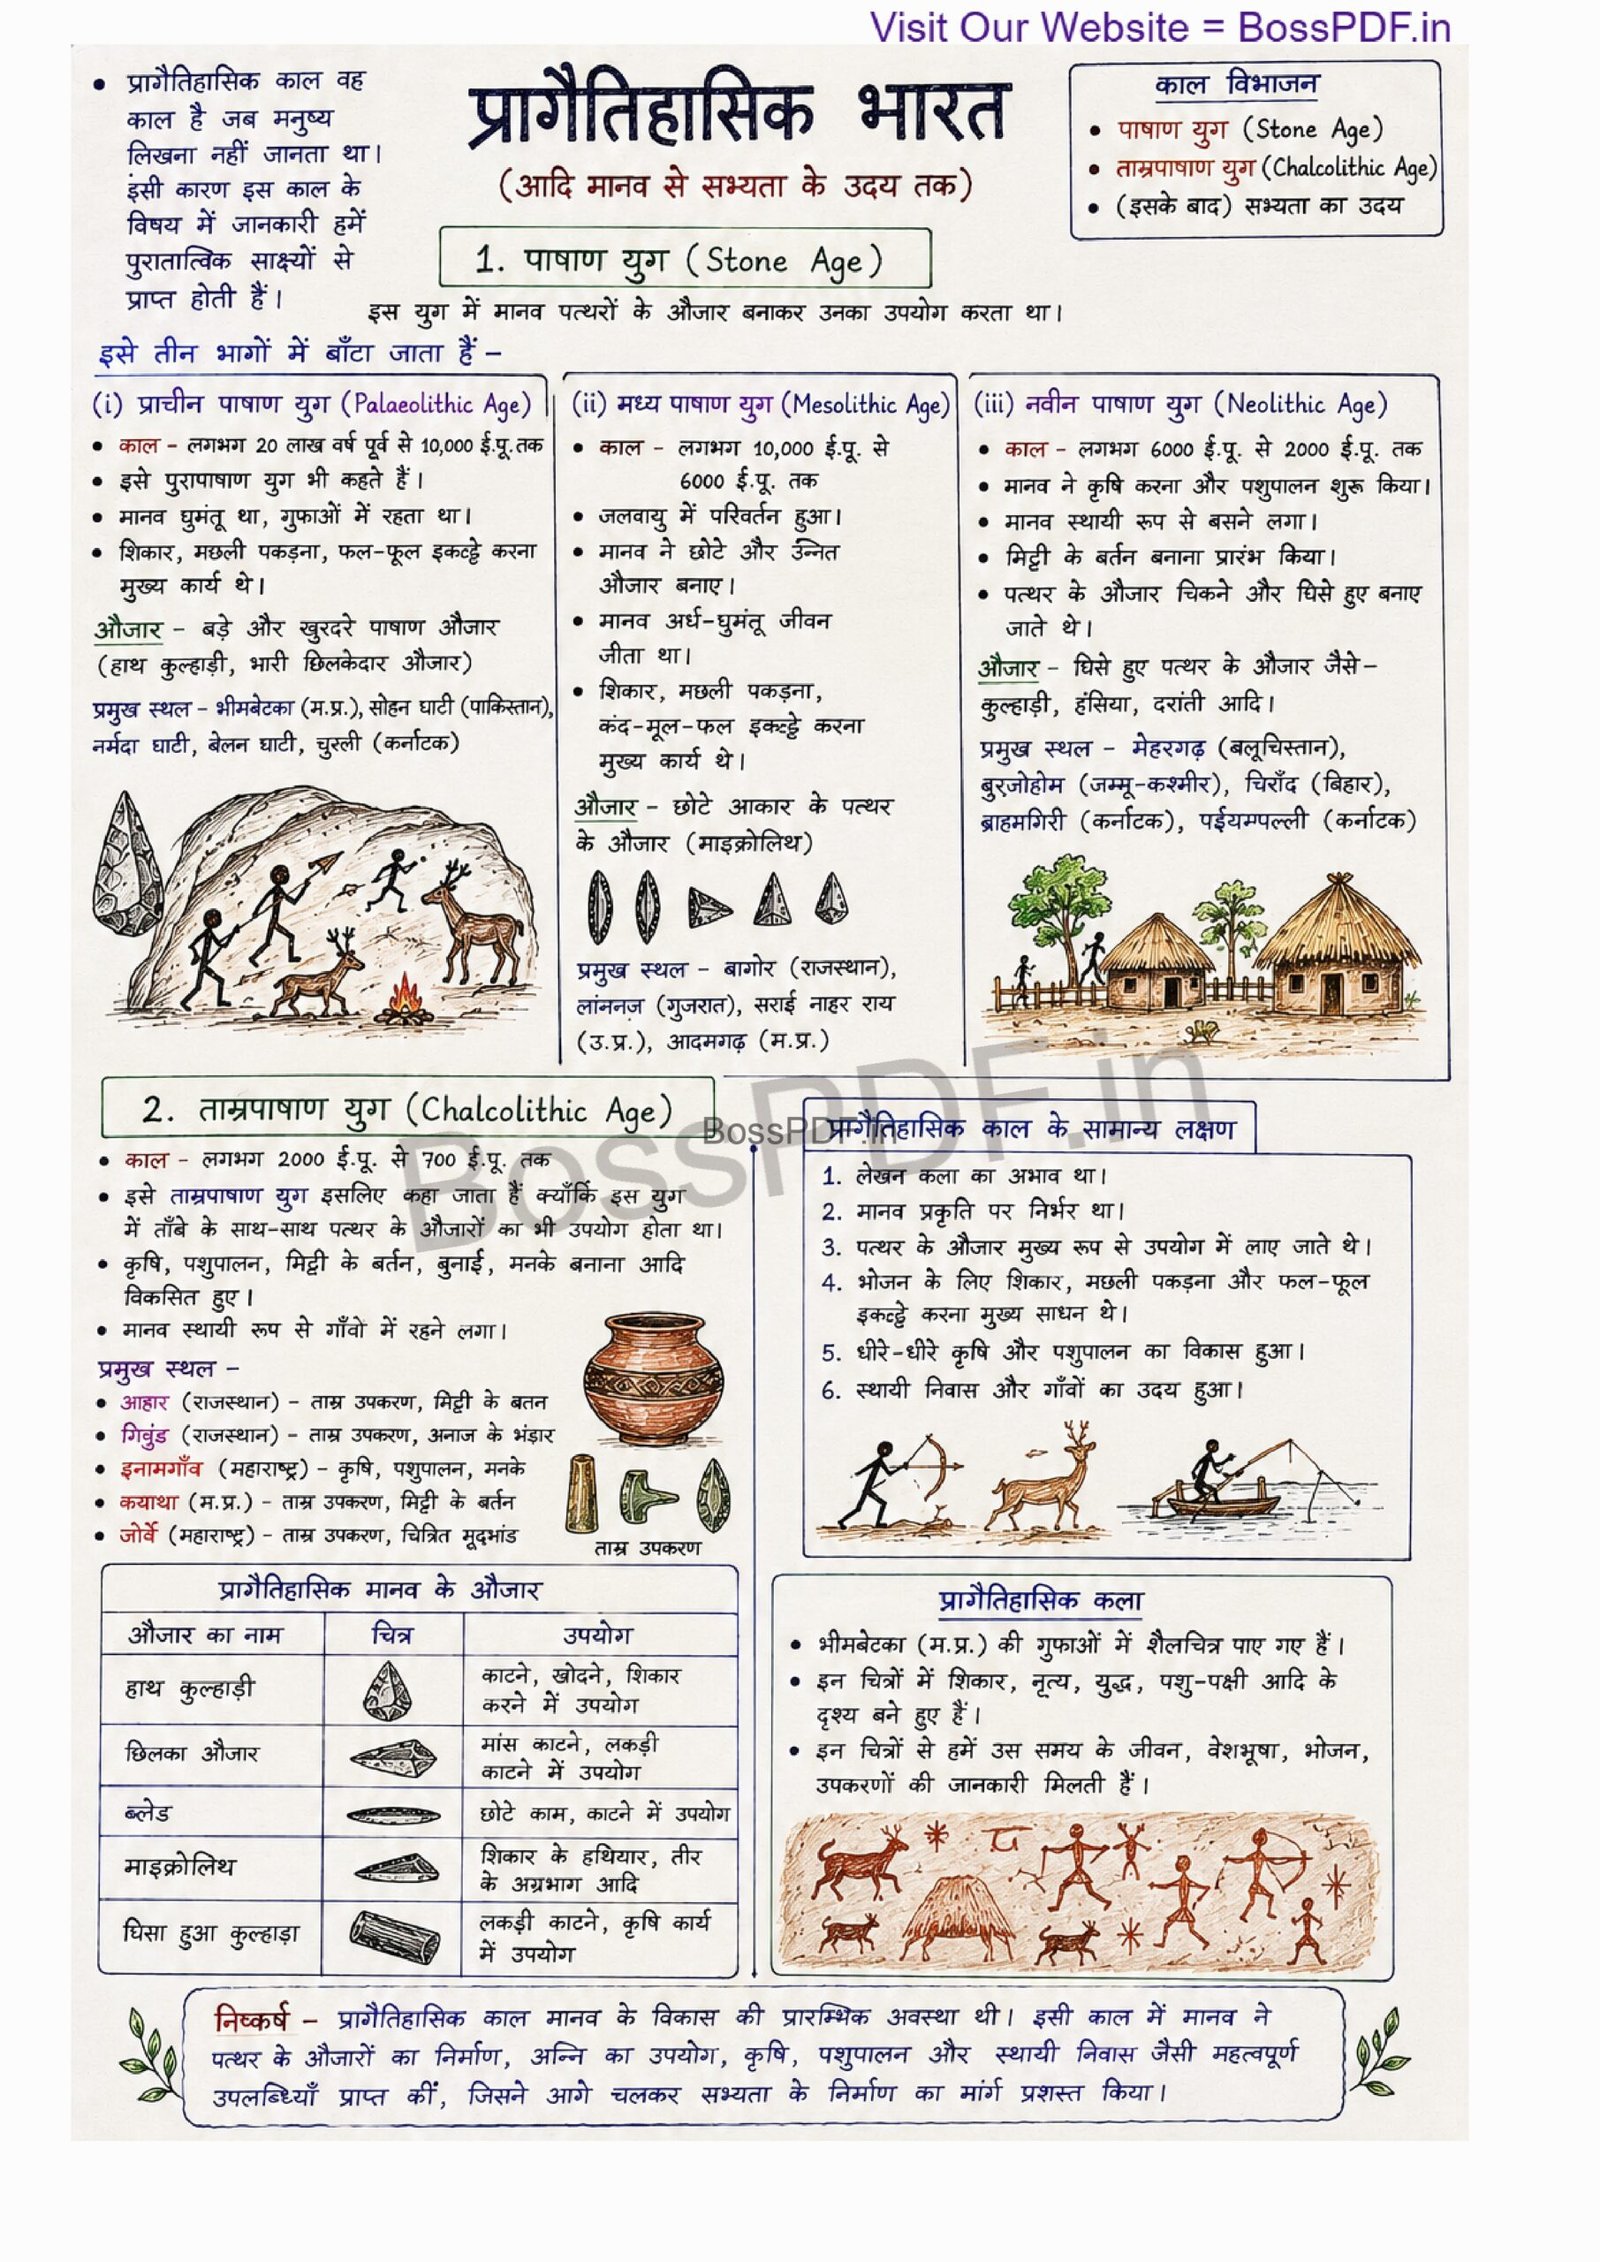 Visit Our Website = BossPDF.in
• प्रागैतिहासिक काल वह
काल है जब मनुष्य
लिखना नहीं जानता था।
इसी कारण इस काल के
विषय में जानकारी हमें
पुरातात्विक साक्ष्यों से
प्राप्त होती हैं।
प्रागैतिहासिक भारत
(आदि मानव से सभ्यता के उदय तक)
काल विभाजन
• पाषाण युग (Stone Age)
• ताम्रपाषाण युग (Chalcolithic Age)
• (इसके बाद) सभ्यता का उदय
1. पाषाण युग (Stone Age)
इस युग में मानव पत्थरों के औजार बनाकर उनका उपयोग करता था।
इसे तीन भागों में बाँटा जाता हैं –
(i) प्राचीन पाषाण युग (Palaeolithic Age)
• काल – लगभग 20 लाख वर्ष पूर्व से 10,000 ई.पू. तक
• इसे पुरापाषाण युग भी कहते हैं।
• मानव घुमंतू था, गुफाओं में रहता था।
• शिकार, मछली पकड़ना, फल-फूल इकट्ठे करना
मुख्य कार्य थे।
औजार – बड़े और खुरदरे पाषाण औजार
(हाथ कुल्हाड़ी, भारी छिलकेदार औजार)
प्रमुख स्थल – भीमबेटका (म.प्र.), सोहन घाटी (पाकिस्तान),
नर्मदा घाटी, बेलन घाटी, चुरली (कर्नाटक)
(ii) मध्य पाषाण युग (Mesolithic Age)
• काल – लगभग 10,000 ई.पू. से
6000 ई.पू. तक
• जलवायु में परिवर्तन हुआ।
• मानव ने छोटे और उन्नित
औजार बनाए।
• मानव अर्ध-घुमंतू जीवन
जीता था।
• शिकार, मछली पकड़ना,
कंद-मूल-फल इकट्ठे करना
मुख्य कार्य थे।
औजार – छोटे आकार के पत्थर
के औजार (माइक्रोलिथ)
प्रमुख स्थल – बागोर (राजस्थान),
लांननज़ (गुजरात), सराई नाहर राय
(उ.प्र.), आदमगढ़ (म.प्र.)
(iii) नवीन पाषाण युग (Neolithic Age)
• काल – लगभग 6000 ई.पू. से 2000 ई.पू. तक
• मानव ने कृषि करना और पशुपालन शुरू किया।
• मानव स्थायी रूप से बसने लगा।
• मिट्टी के बर्तन बनाना प्रारंभ किया।
• पत्थर के औजार चिकने और घिसे हुए बनाए
जाते थे।
औजार – घिसे हुए पत्थर के औजार जैसे–
कुल्हाड़ी, हंसिया, दरांती आदि।
प्रमुख स्थल – मेहरगढ़ (बलूचिस्तान),
बुरजोहोम (जम्मू-कश्मीर), चिराँद (बिहार),
ब्राहमगिरी (कर्नाटक), पईयम्पल्ली (कर्नाटक)
2. ताम्रपाषाण युग (Chalcolithic Age)
• काल – लगभग 2000 ई.पू. से 700 ई.पू. तक
• इसे ताम्रपाषाण युग इसलिए कहा जाता हैं क्योंकि इस युग
में ताँबे के साथ-साथ पत्थर के औजारों का भी उपयोग होता था।
• कृषि, पशुपालन, मिट्टी के बर्तन, बुनाई, मनके बनाना आदि
विकसित हुए।
• मानव स्थायी रूप से गाँवो में रहने लगा।
प्रमुख स्थल –
• आहार (राजस्थान) – ताम्र उपकरण, मिट्टी के बतन
• गिवुंड (राजस्थान) – ताम्र उपकरण, अनाज के भंड़ार
• इनामगाँव (महाराष्ट्र) – कृषि, पशुपालन, मनके
• कयाथा (म.प्र.) – ताम्र उपकरण, मिट्टी के बर्तन
• जोर्वे (महाराष्ट्र) – ताम्र उपकरण, चित्रित मूदभांड
ताम्र उपकरण
BossPDF.in
BossPDF.in
प्रागैतिहासिक काल के सामान्य लक्षण
1. लेखन कला का अभाव था।
2. मानव प्रकृति पर निर्भर था।
3. पत्थर के औजार मुख्य रूप से उपयोग में लाए जाते थे।
4. भोजन के लिए शिकार, मछली पकड़ना और फल-फूल
इकट्ठे करना मुख्य साधन थे।
5. धीरे-धीरे कृषि और पशुपालन का विकास हुआ।
6. स्थायी निवास और गाँवों का उदय हुआ।
प्रागैतिहासिक मानव के औजार
औजार का नाम चित्र उपयोग
हाथ कुल्हाड़ी काटने, खोदने, शिकार
करने में उपयोग
छिलका औजार मांस काटने, लकड़ी
काटने में उपयोग
ब्लेड छोटे काम, काटने में उपयोग
माइक्रोलिथ शिकार के हथियार, तीर
के अग्रभाग आदि
घिसा हुआ कुल्हाड़ा लकड़ी काटने, कृषि कार्य
में उपयोग
प्रागैतिहासिक कला
• भीमबेटका (म.प्र.) की गुफाओं में शैलचित्र पाए गए हैं।
• इन चित्रों में शिकार, नृत्य, युद्ध, पशु-पक्षी आदि के
दृश्य बने हुए हैं।
• इन चित्रों से हमें उस समय के जीवन, वेशभूषा, भोजन,
उपकरणों की जानकारी मिलती हैं।
निष्कर्ष – प्रागैतिहासिक काल मानव के विकास की प्रारम्भिक अवस्था थी। इसी काल में मानव ने
पत्थर के औजारों का निर्माण, अन्नि का उपयोग, कृषि, पशुपालन और स्थायी निवास जैसी महत्वपूर्ण
उपलब्धियाँ प्राप्त कीं, जिसने आगे चलकर सभ्यता के निर्माण का मांर्ग प्रशस्त किया।